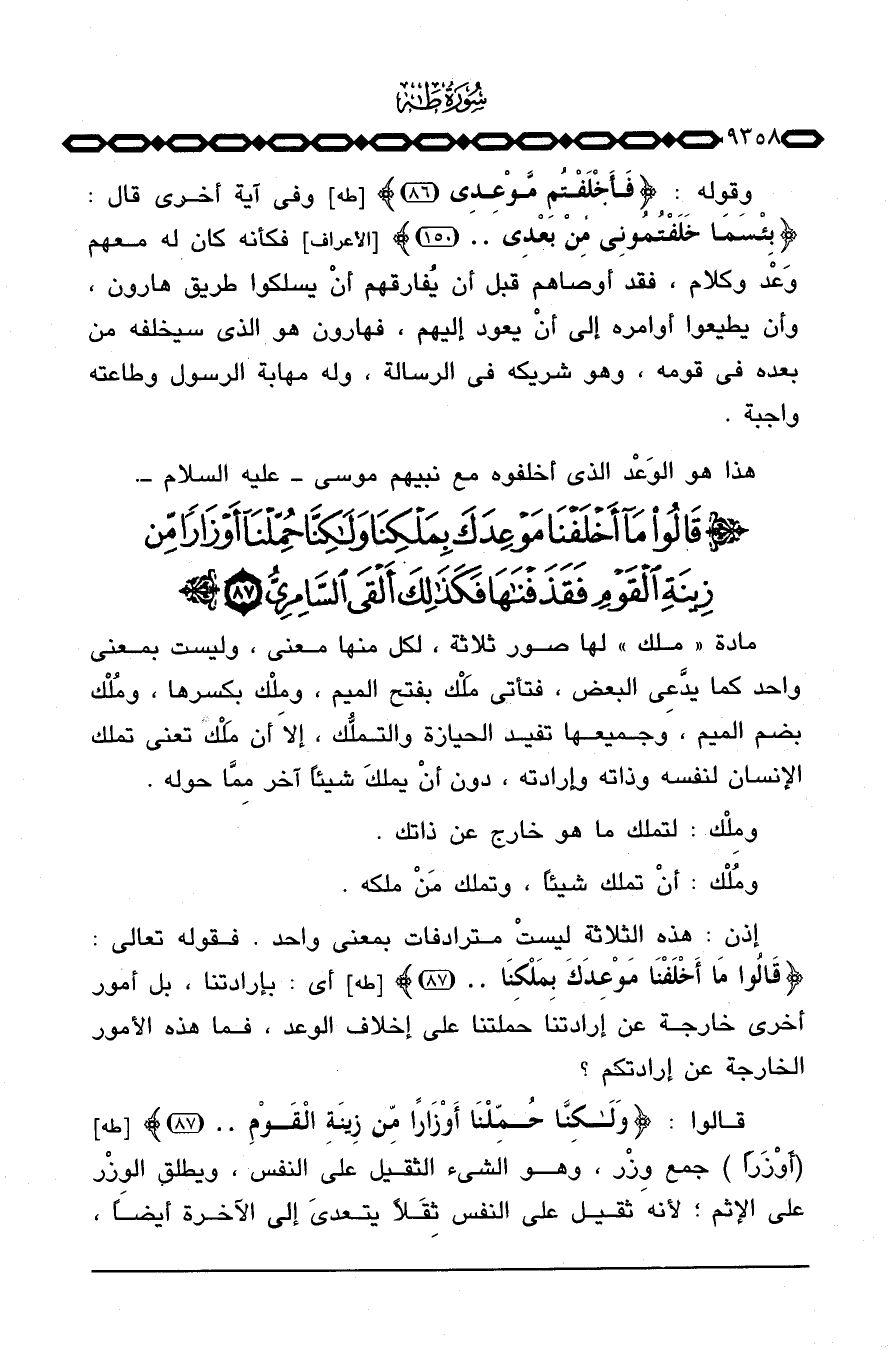 سُورَةُ طه
٩٣٥٨
وقوله : ﴿ فَأَخْلَفْتُم مَّوْعِدِى (٨٦) ﴾ [طه] وفى آية أخرى قال :
﴿ بِئْسَمَا خَلَفْتُمُونِى مِنْ بَعْدِى .. (١٥٠) ﴾ [الأعراف] فكأنه كان له معهم
وَعْد وكلام ، فقد أوصاهم قبل أن يُفارقهم أنْ يسلكوا طريق هارون ،
وأن يطيعوا أوامره إلى أنْ يعود إليهم ، فهارون هو الذى سيخلفه من
بعده فى قومه ، وهو شريكه فى الرسالة ، وله مهابة الرسول وطاعته
واجبة .
هذا هو الوَعْد الذى أخلفوه مع نبيهم موسى - عليه السلام -.
﴿ قَالُوا۟ مَآ أَخْلَفْنَا مَوْعِدَكَ بِمَلْكِنَا وَلَٰكِنَّا حُمِّلْنَآ أَوْزَارًا مِّن
زِينَةِ ٱلْقَوْمِ فَقَذَفْنَٰهَا فَكَذَٰلِكَ أَلْقَى ٱلسَّامِرِىُّ ٨٧ ﴾
مادة « ملك » لها صور ثلاثة ، لكل منها معنى ، وليست بمعنى
واحد كما يدَّعى البعض ، فتأتى مَلْك بفتح الميم ، ومِلْك بكسرها ، ومُلْك
بضم الميم ، وجميعها تفيد الحيازة والتملُّك ، إلا أن مَلْك تعنى تملك
الإنسان لنفسه وذاته وإرادته ، دون أنْ يملكَ شيئاً آخر ممَّا حوله .
ومِلْك : لتملك ما هو خارج عن ذاتك .
ومُلْك : أنْ تملك شيئاً ، وتملك مَنْ ملكه .
إذن : هذه الثلاثة ليستْ مترادفات بمعنى واحد . فقوله تعالى :
﴿ قَالُوا مَا أَخْلَفْنَا مَوْعِدَكَ بِمَلْكِنَا .. (٨٧) ﴾ [طه] أى : بإرادتنا ، بل أمور
أخرى خارجة عن إرادتنا حملتنا على إخلاف الوعد ، فما هذه الأمور
الخارجة عن إرادتكم ؟
قالوا : ﴿ وَلَٰكِنَّا حُمِّلْنَا أَوْزَارًا مِّن زِينَةِ الْقَوْمِ .. (٨٧) ﴾ [طه]
(أَوْزَراً ) جمع وِزْر ، وهو الشىء الثقيل على النفس ، ويطلق الوِزْر
على الإثم ؛ لأنه ثقيل على النفس ثِقَلاً يتعدىَ إلى الآخرة أيضاً ،